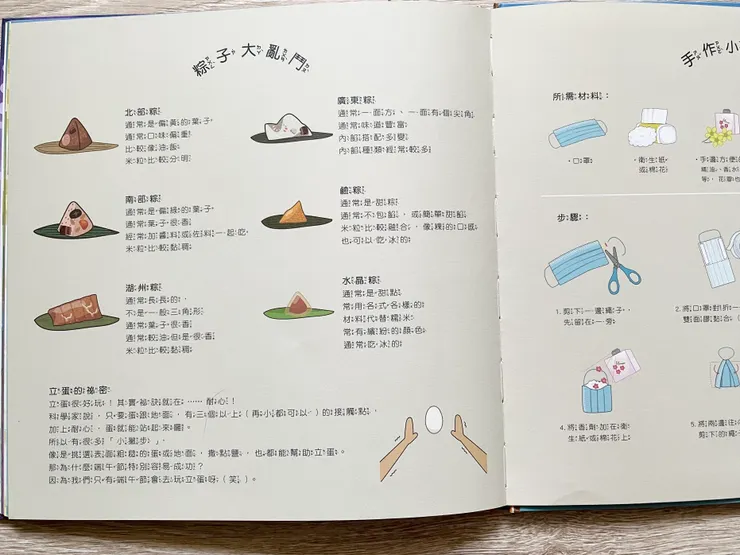 粽子大亂鬥
北部粽
通常是偏黃的葉子。
通常口味偏重
比較像油飯
米粒比較分明
廣東粽
通常一面方、一面有個尖角
通常味道豐富
內餡搭配多變
內餡種類經常較多
南部粽
通常是偏綠的葉子。
通常葉子很香
經常加醬料或佐料一起吃
米粒比較黏稠
鹼粽
通常是甜餡
通常不包餡，或簡單甜餡
米粒比較融合，像粿的口感
也可以吃冰的
湖州粽
通常長長的，
不是一般三角形
通常葉子很香
通常較油但是很香
米粒比較黏稠
水晶粽
通常是甜點
常用各式各樣的
材料代替糯米
常有繽紛的顏色
通常吃冰的
立蛋的祕密
立蛋很好玩！其實祕訣就在……耐心！
科學家說，只要蛋跟地面，有三個以上（再小都可以）的接觸點，
加上耐心，蛋就能站起來囉。
所以有很多「小撇步」，
像是挑選表面粗糙的蛋或地面，撒點鹽，也都能幫助立蛋。
那為什麼端午節特別容易成功？
因為我們只有端午節會去玩立蛋呀（笑）。
手作小
所需材料：
・口罩
・衛生紙
或棉花
步驟：
1. 剪下一邊繩子，
先留在一旁
2. 將口罩對折一
雙面膠黏合（
4. 將香劑加在衛
生紙或棉花上
5. 將兩邊往
剪下的繩